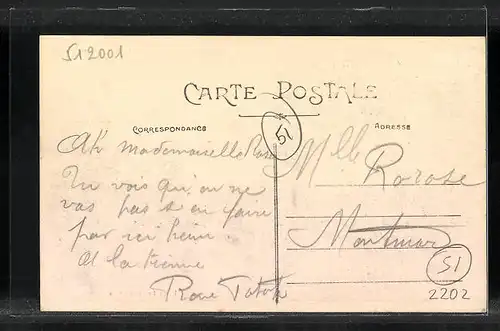 512001
CARTE POSTALE
CORRESPONDANCE
ADRESSE
51
Ah mademoiselle Rose
Tu vois qu'on ne
vas pas s'en faire
par ici hein.
A la tienne
Mlle
Rorose
51
2202